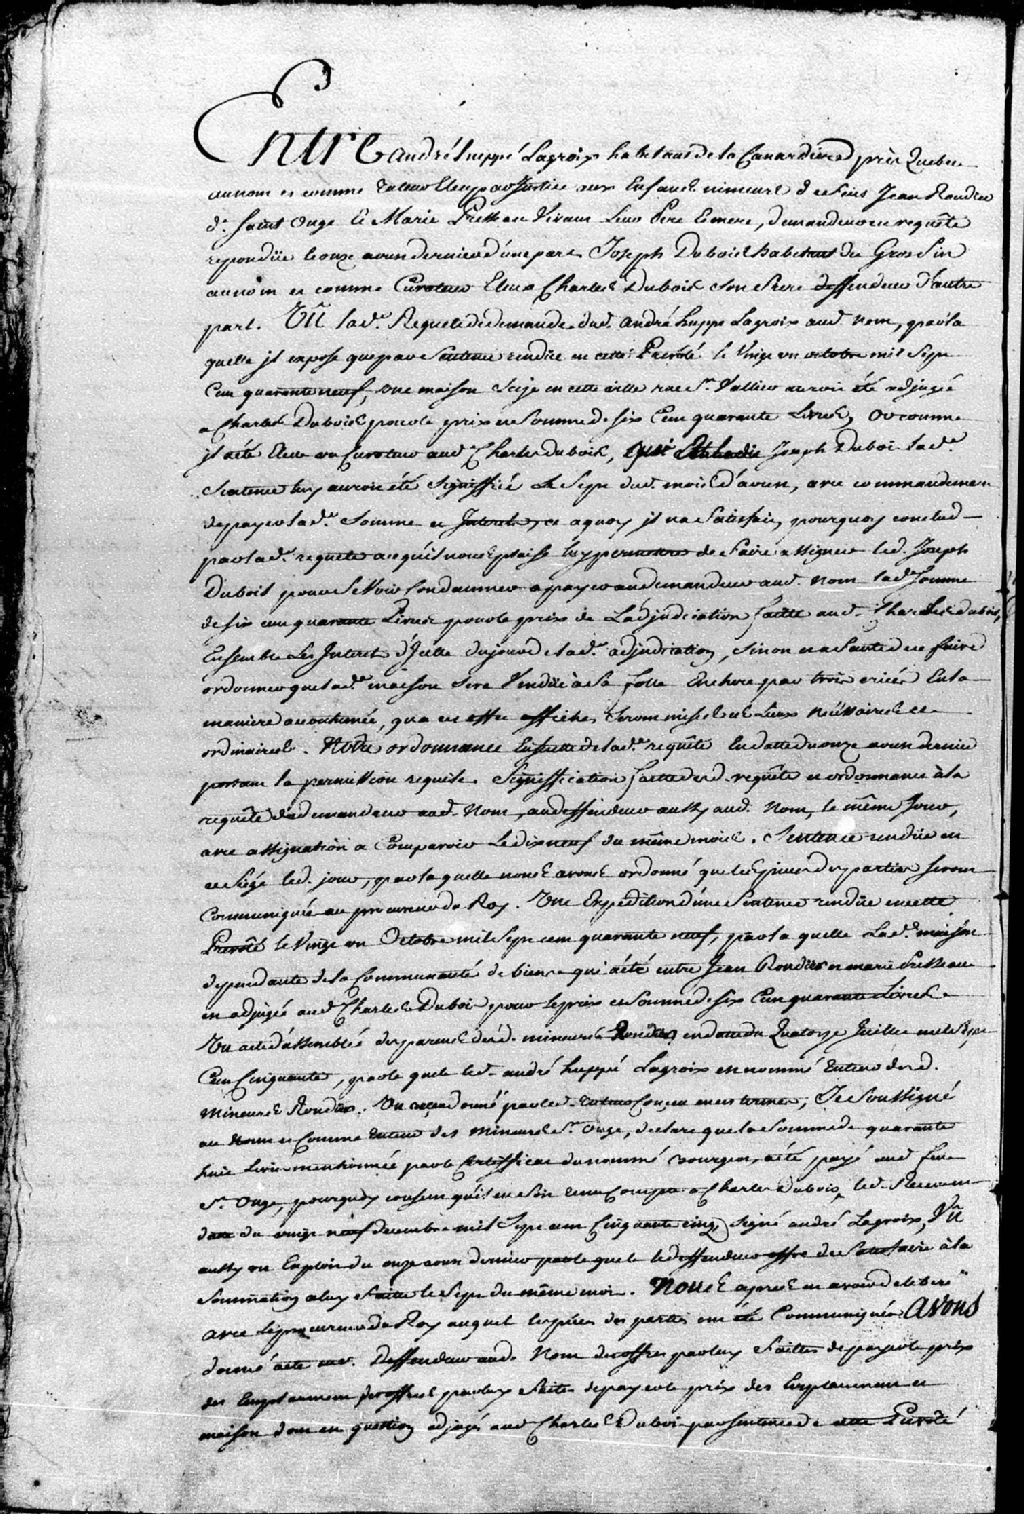 Entre André huppé Lagroix habitant de la Canardiere près Quebec
au nom et comme Tuteur Eleu par Justice aux Enfans mineurs de feus Jean Rondier
dt. Saint Onge et Marie Vivant Leur Pere et mere, demandeur en requête
repondüe le onze avril dernier d'une part. Joseph Dubois habitant du
au nom et comme Curateur Eleu a Charles Dubois Son frere deffendeur D'autre
part. Vû lade. Requete de demande dud. André huppé Lagroix aud. nom, par la
quelle il expose que par Sentence rendüe en cette Prevôté le Vingt un octobre mil Sept
Cent quarante neuf, une maison Scize en cette ville rue St. Vallier auroit été adjugée
a Charles Dubois pour le prix et Somme de six Cent quarante Livres, et comme
il a été Eleu un Curateur aud. Charles Dubois, Joseph Dubois lade.
Sentence luy auroit été Signiffié Le Sept dud. mois d'avril, avec commandement
de payer lade. Somme et Interets, a quoy il n'a Satisfait, pourquoy conclud
par lade. requete a ce qu'il nous plaise luy permettre de faire assigner led. Joseph
Dubois pour Se Voir Condamner a payer au demandeur aud. nom lade. Somme
de six cent quarante Livres pour le prix de L'adjudication faitte aud. Charles dubois,
Ensemble Les Interest d'Icelle du jour de lade. adjudication, Sinon et a faute de ce faire
ordonner que lade. maison Sera Vendüe à la folle Enchere par trois criées En la
maniere accoutumée, qu'a cet effet affiches Seront mises es Lieux necessaires et
ordinaires. Notre ordonnance Ensuitte de lade. requête En datte du onze avril dernier
portant la permission requise. Signiffication faitte desd. requête et ordonnance à la
requête du demandeur aud. Nom, au deffendeur aussy aud. Nom, le même Jour,
avec assignation a Comparoir Le dix neuf du même mois. Sentence rendüe en
ce Siége led. jour, par laquelle nous avons ordonné que les pieces des parties seront
Communiquée au procureur du Roy. Une Expedition d'une Sentence rendüe en cette
Prevôté le Vingt un Octobre mil Sept cent quarante neuf, par la quelle Lade. maison
dependante de la Communauté de biens qui a été entre Jean Rondier et marie
est adjugée aud. Charles Dubois pour le prix et Somme de six Cent quarante Livres.
Un acte d'assemblée des parens desd. mineurs Rondier, en datte du Quatorze Juillet mil Sept
Cent Cinquante, par le quel led. andré huppé Lagroix est nommé Tuteur desd.
Mineurs Rondier. Un donné par led. Tuteur Conçu en ces termes; Je Soussigné
au Nom et Comme Tuteur des Mineurs St. Onge, declare que la Somme de quarante
huit Livres mentionnée par le Certifficat du nommé a été payé aud. feu
St. Onge, pourquoy consent qu'il en Soit tenu Compte a Charles Dubois, led.
datte du vingt neuf decembre mil Sept cent Cinquante cinq Signé andré Lagroix, Vû
aussy un Exploit du onze avril dernier par le quel le deffendeur offre de Satisfaire à la
Sommation a luy faitte le Sept du même mois. Nous apres en avoir deliberé
avec le procureur du Roy auquel les pieces des parties ont été Communiquées Avons
donné acte au Deffendeur aud. Nom des offres par luy Faittes de payer le prix
des Emplacement des offres par luy faittes de payer le prix des Emplacement et
maison dont est question adjugés aud. Charles Dubois par sentence de cette Prevôté